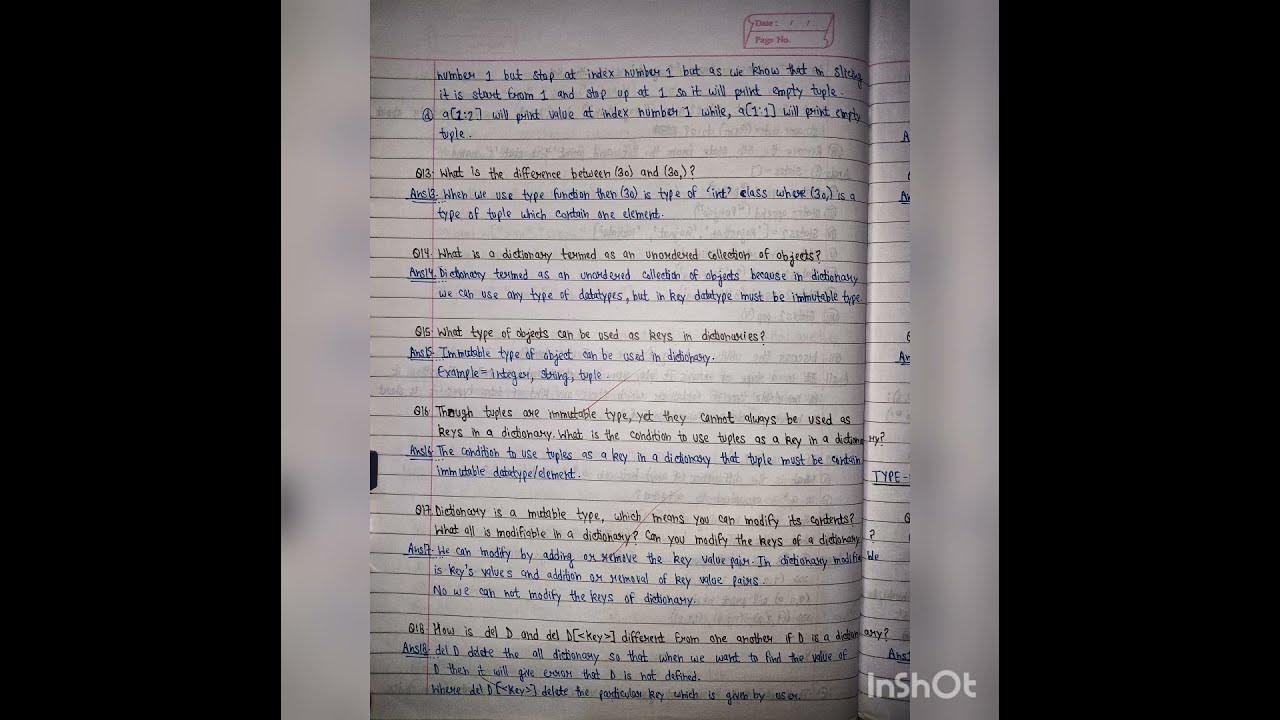 Date : / /
Page No.
number 1 but stop at index number 1 but as we know that in slicing
it is start from 1 and stop up at 1 so it will print empty tuple.
a[1:2] will print value at index number 1 while, a[1:1] will print empty
tuple.
Q13. What is the difference between (30) and (30,)?
Ans13. When we use type function then (30) is type of 'int' class where (30,) is a
type of tuple which contain one element.
Q14. What is a dictionary termed as an unordered collection of objects?
Ans14. Dictionary termed as an unordered collection of objects because in dictionary
we can use any type of datatypes, but in key datatype must be immutable type.
Q15. What type of objects can be used as keys in dictionaries?
Ans15. Immutable type of object can be used in dictionary.
Example = integer, string, tuple.
Q16. Though tuples are immutable type, yet they cannot always be used as
keys in a dictionary. What is the condition to use tuples as a key in a dictionary?
Ans16. The condition to use tuples as a key in a dictionary that tuple must be contain
immutable datatype/element.
Q17. Dictionary is a mutable type, which means you can modify its contents?
What all is modifiable in a dictionary? Can you modify the keys of a dictionary?
Ans17. We can modify by adding or remove the key value pair. In dictionary modifiable
is key's values and addition or removal of key value pairs.
No we can not modify the keys of dictionary.
Q18. How is del D and del D[<key>] different from one another if D is a dictionary?
Ans18. del D delete the all dictionary so that when we want to find the value of
D then it will give error that D is not defined.
Where del D[<key>] delete the particular key which is given by user.
TYPE-
InShOt